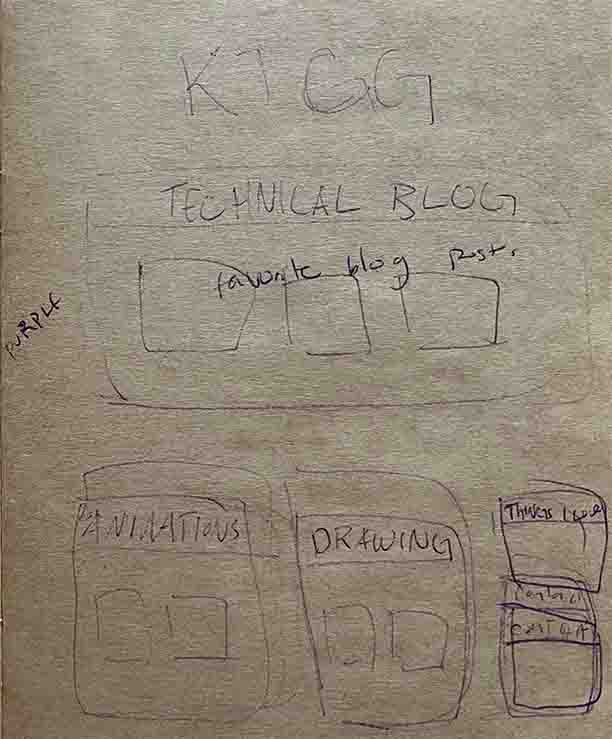 KTGG
TECHNICAL BLOG
favorite blog post.
PURPLE
ANIMATIONS
DRAWING
Things I love
Contact